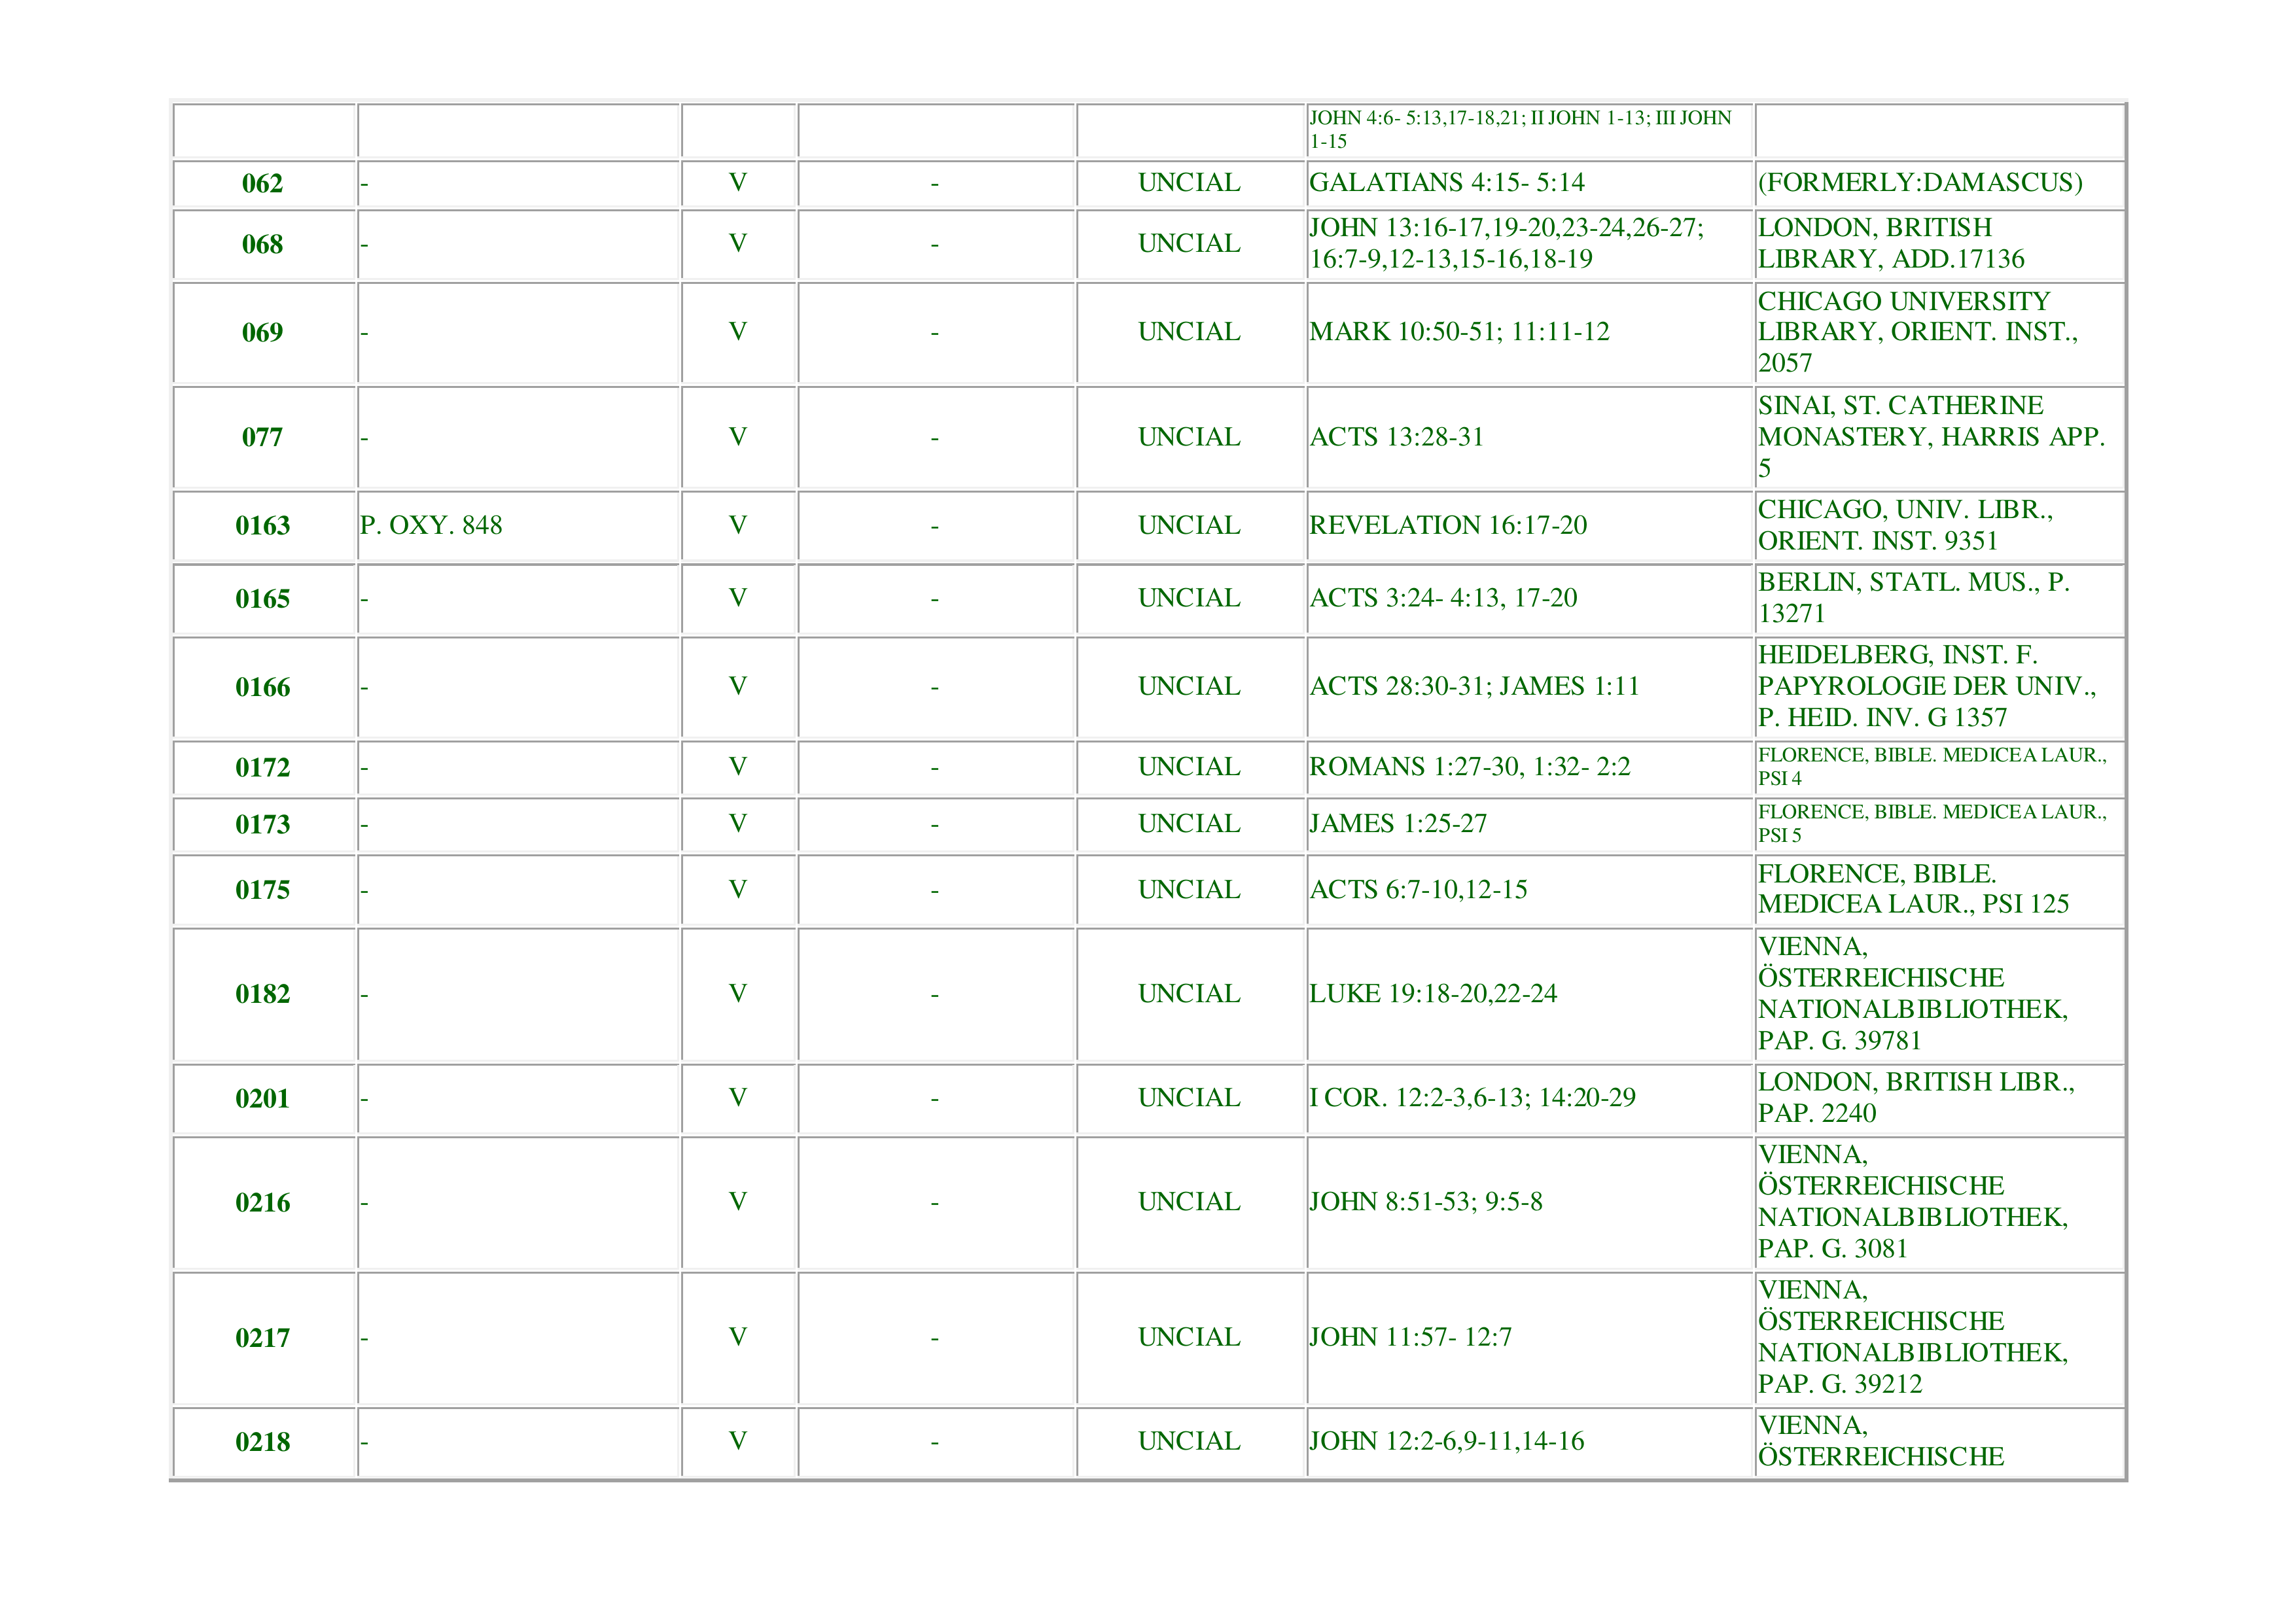 JOHN 4:6- 5:13,17-18,21; II JOHN 1-13; III JOHN
1-15
062 - V - UNCIAL GALATIANS 4:15- 5:14 (FORMERLY:DAMASCUS)
068 - V - UNCIAL JOHN 13:16-17,19-20,23-24,26-27;
16:7-9,12-13,15-16,18-19 LONDON, BRITISH
LIBRARY, ADD.17136
069 - V - UNCIAL MARK 10:50-51; 11:11-12 CHICAGO UNIVERSITY
LIBRARY, ORIENT. INST.,
2057
077 - V - UNCIAL ACTS 13:28-31 SINAI, ST. CATHERINE
MONASTERY, HARRIS APP.
5
0163 P. OXY. 848 V - UNCIAL REVELATION 16:17-20 CHICAGO, UNIV. LIBR.,
ORIENT. INST. 9351
0165 - V - UNCIAL ACTS 3:24- 4:13, 17-20 BERLIN, STATL. MUS., P.
13271
0166 - V - UNCIAL ACTS 28:30-31; JAMES 1:11 HEIDELBERG, INST. F.
PAPYROLOGIE DER UNIV.,
P. HEID. INV. G 1357
0172 - V - UNCIAL ROMANS 1:27-30, 1:32- 2:2 FLORENCE, BIBLE. MEDICEA LAUR.,
PSI 4
0173 - V - UNCIAL JAMES 1:25-27 FLORENCE, BIBLE. MEDICEA LAUR.,
PSI 5
0175 - V - UNCIAL ACTS 6:7-10,12-15 FLORENCE, BIBLE.
MEDICEA LAUR., PSI 125
0182 - V - UNCIAL LUKE 19:18-20,22-24 VIENNA,
ÖSTERREICHISCHE
NATIONALBIBLIOTHEK,
PAP. G. 39781
0201 - V - UNCIAL I COR. 12:2-3,6-13; 14:20-29 LONDON, BRITISH LIBR.,
PAP. 2240
0216 - V - UNCIAL JOHN 8:51-53; 9:5-8 VIENNA,
ÖSTERREICHISCHE
NATIONALBIBLIOTHEK,
PAP. G. 3081
0217 - V - UNCIAL JOHN 11:57- 12:7 VIENNA,
ÖSTERREICHISCHE
NATIONALBIBLIOTHEK,
PAP. G. 39212
0218 - V - UNCIAL JOHN 12:2-6,9-11,14-16 VIENNA,
ÖSTERREICHISCHE